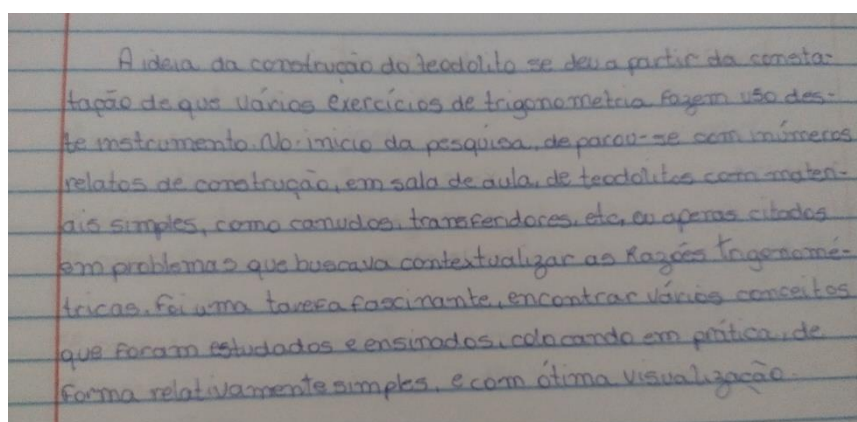 A ideia da construção do teodolito se deu a partir da consta-
tação de que vários exercícios de trigonometria fazem uso des-
te instrumento. No início da pesquisa, deparou-se com inúmeros
relatos de construção, em sala de aula, de teodolitos com materi-
ais simples, como canudos, transferidores, etc, ou apenas citados
em problemas que buscava contextualizar as Razões Trigonomé-
tricas. Foi uma tarefa fascinante, encontrar vários conceitos
que foram estudados e ensinados, colocando em prática, de
forma relativamente simples, e com ótima visualização.